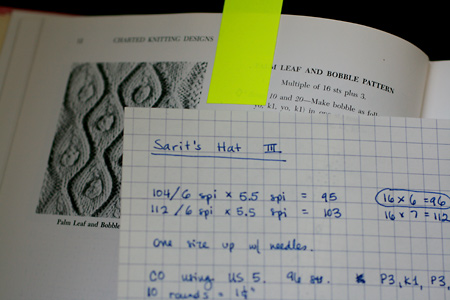 CHARTED KNITTING DESIGNS
LEAF AND BOBBLE PATTERN
Multiple of 16 sts plus 3.
10 and 20—Make bobble as
yo, k1, yo, k1) in one
Palm Leaf and Bobble
Sarit's Hat III
104/6 spi × 5.5 spi = 95
112/6 spi × 5.5 spi = 103
16 × 6 = 96
16 × 7 = 112
One size up w/ needles.
CO using US 5. 96 sts.
P3, K1, P3,
10 rounds = 1